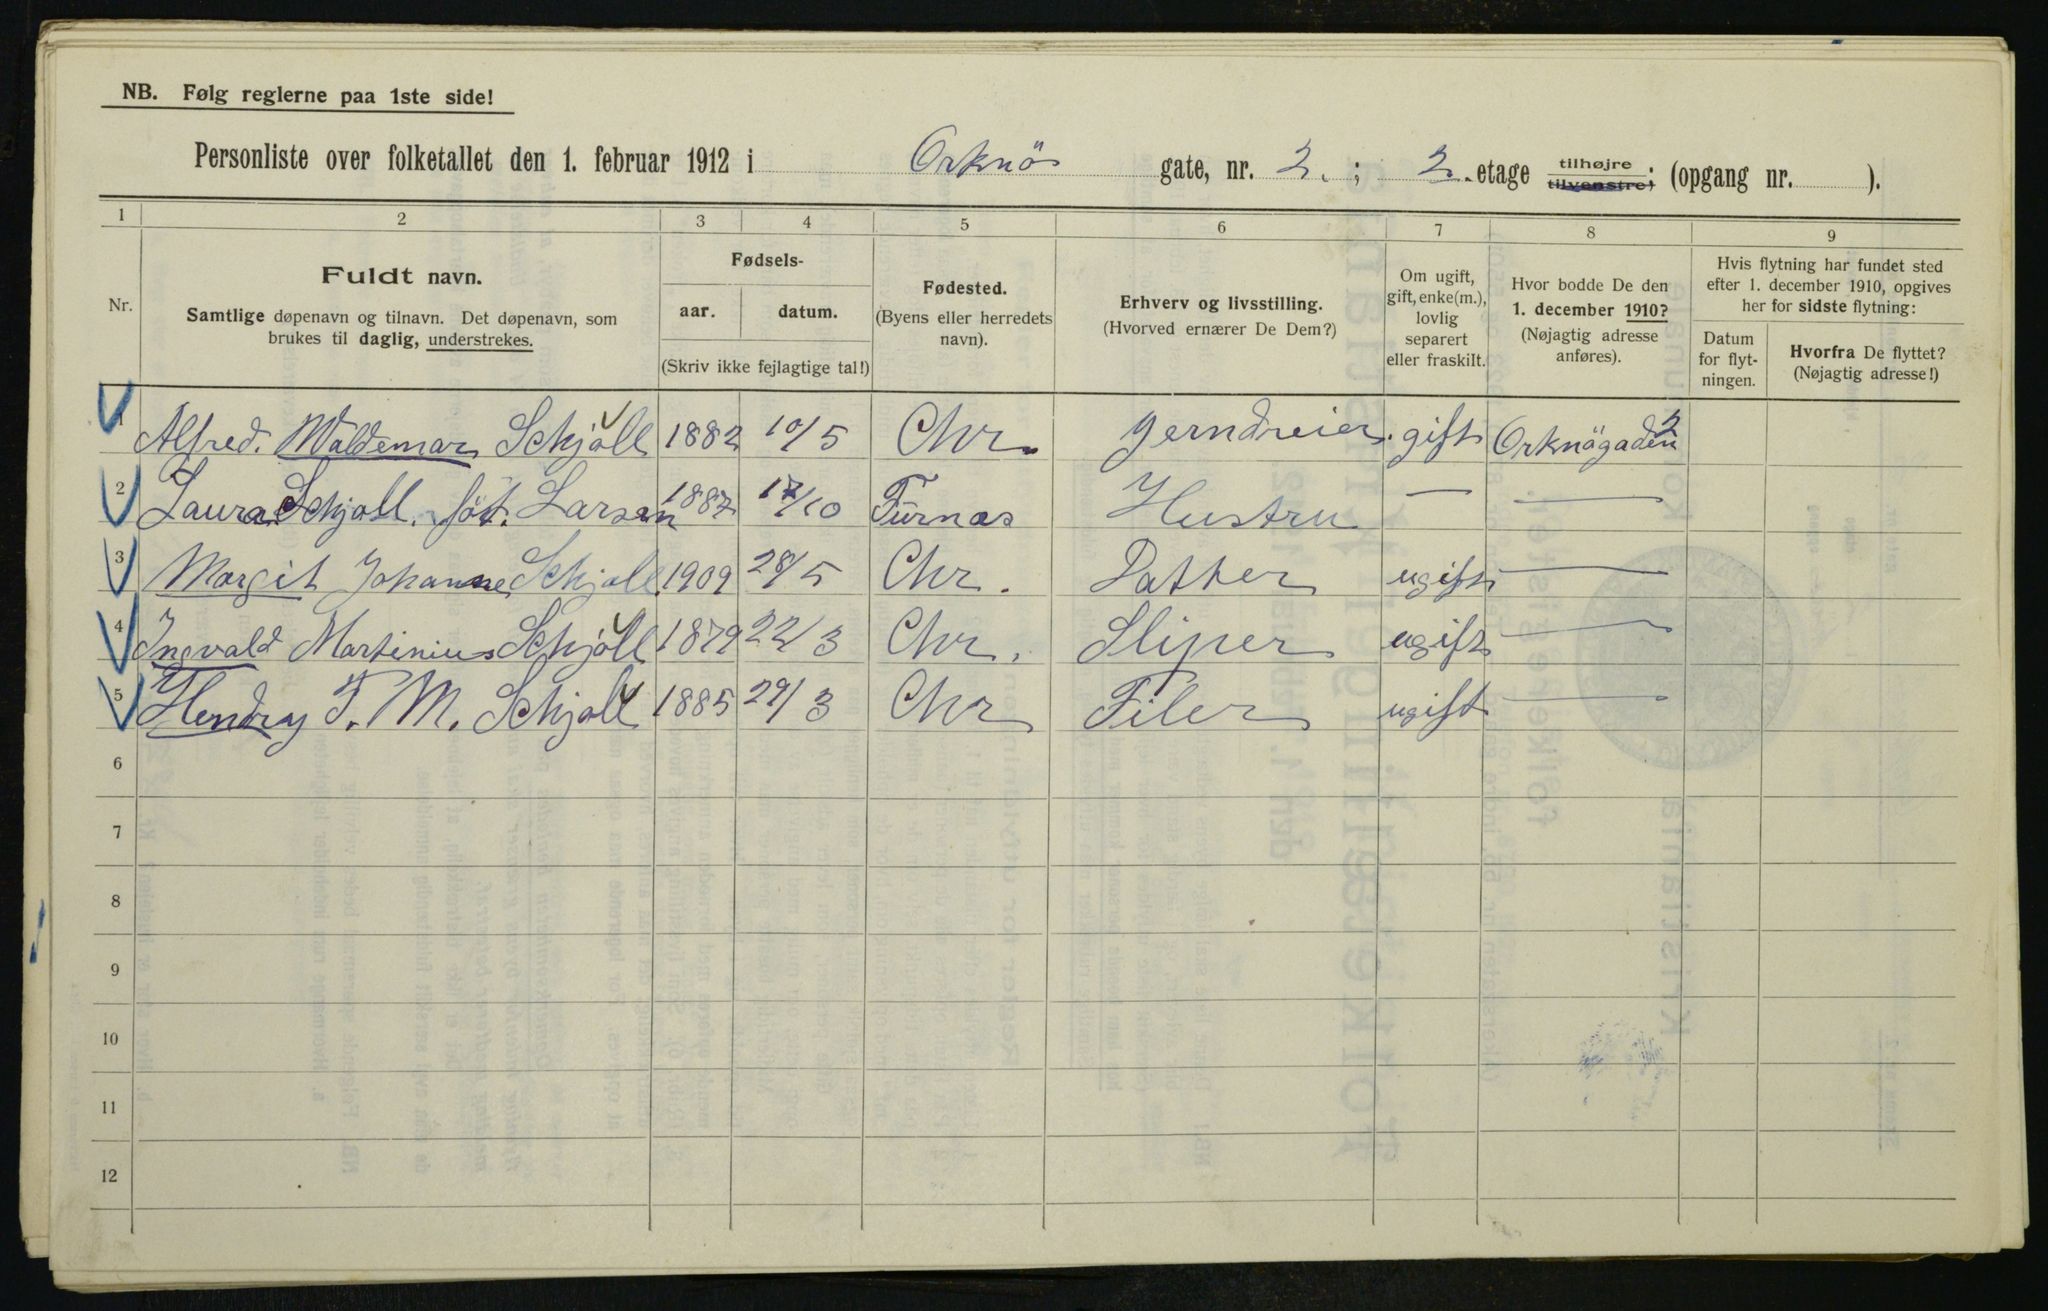 NB. Følg reglerne paa 1ste side!
Personliste over folketallet den 1. februar 1912 i Orknös gate, nr. 2. ; 2. etage tilhøjre tilvenstre; (opgang nr. ).
1 2 3 4 5 6 7 8 9
Nr.
Fuldt navn.
Samtlige døpenavn og tilnavn. Det døpenavn, som
brukes til daglig, understrekes.
Fødsels-
aar. datum.
(Skriv ikke fejlagtige tal!)
Fødested.
(Byens eller herredets
navn).
Erhverv og livsstilling.
(Hvorved ernærer De Dem?)
Om ugift,
gift, enke(m.),
lovlig
separert
eller fraskilt.
Hvor bodde De den
1. december 1910?
(Nøjagtig adresse
anføres).
Hvis flytning har fundet sted
efter 1. december 1910, opgives
her for sidste flytning:
Datum
for flyt-
ningen.
Hvorfra De flyttet?
(Nøjagtig adresse!)
1 Alfred. Waldemar Schjöll 1882 10/5 Chr. Jerndreier. gift Orknögaden 2
2 Laura Schjoll. föt. Larsen 1887 17/10 Furnæs Hustru — —
3 Margit Johanne Schjoll. 1909 28/5 Chr. Datter ugift —
4 Ingvald Martinius Schjöll 1879 22/3 Chr. Sliper ugift —
5 Hendry F. M. Schjoll 1885 29/3 Chr Filer ugift —
6
7
8
9
10
11
12